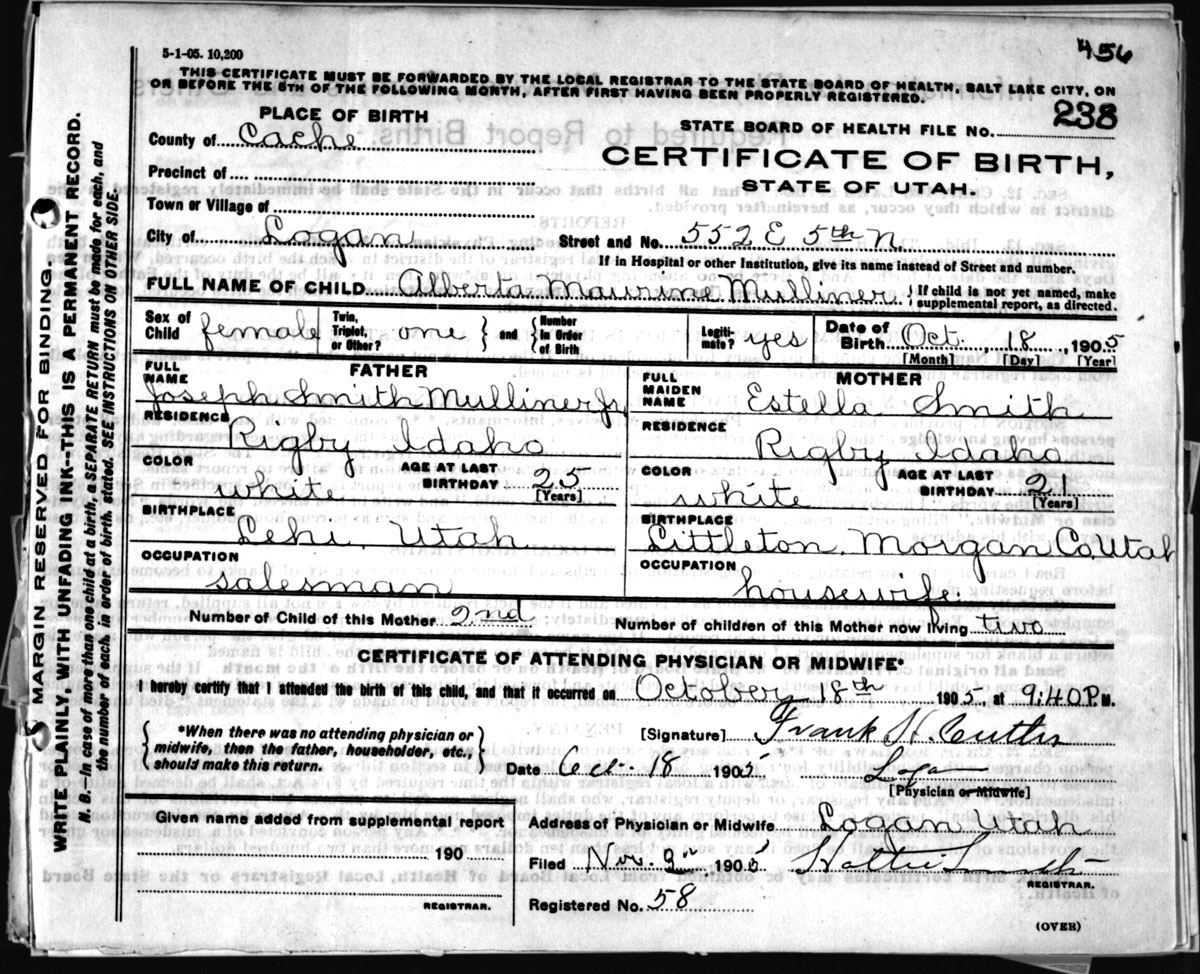 5-1-05. 10,200
456
THIS CERTIFICATE MUST BE FORWARDED BY THE LOCAL REGISTRAR TO THE STATE BOARD OF HEALTH, SALT LAKE CITY, ON
OR BEFORE THE 5TH OF THE FOLLOWING MONTH, AFTER FIRST HAVING BEEN PROPERLY REGISTERED.
PLACE OF BIRTH
STATE BOARD OF HEALTH FILE NO. 238
County of Cache
CERTIFICATE OF BIRTH,
STATE OF UTAH.
Precinct of
Town or Village of
City of Logan Street and No. 552 E 5th N.
If in Hospital or other Institution, give its name instead of Street and number.
FULL NAME OF CHILD Alberta Maurine Mulliner { If child is not yet named, make
supplemental report, as directed.
Sex of Child female Twin, Triplet, or Other? one } and { Number in Order of Birth Legiti-mate? yes Date of Birth Oct. 18, 1905
[Month] [Day] [Year]
FATHER
FULL NAME Joseph Smith Mulliner Jr.
RESIDENCE Rigby Idaho
COLOR white AGE AT LAST BIRTHDAY 25
[Years]
BIRTHPLACE Lehi. Utah
OCCUPATION salesman
MOTHER
FULL MAIDEN NAME Estella Smith
RESIDENCE Rigby Idaho
COLOR white AGE AT LAST BIRTHDAY 21
[Years]
BIRTHPLACE Littleton. Morgan Co, Utah
OCCUPATION housewife.
Number of Child of this Mother 2nd Number of children of this Mother now living two
CERTIFICATE OF ATTENDING PHYSICIAN OR MIDWIFE*
I hereby certify that I attended the birth of this child, and that it occurred on October 18th 1905, at 9:40 P.M.
{ *When there was no attending physician or
midwife, then the father, householder, etc.,
should make this return. }
[Signature] Frank H.
Date Oct. 18 1905
[Physician or Midwife]
Given name added from supplemental report
190
REGISTRAR.
Address of Physician or Midwife Logan Utah
Filed Nov. 1905 Smith
REGISTRAR.
Registered No. 58
(OVER)
MARGIN RESERVED FOR BINDING.
WRITE PLAINLY, WITH UNFADING INK--THIS IS A PERMANENT RECORD.
N. B.- In case of more than one child at a birth, a SEPARATE RETURN must be made for each, and
the number of each, in order of birth, stated. SEE INSTRUCTIONS ON OTHER SIDE.